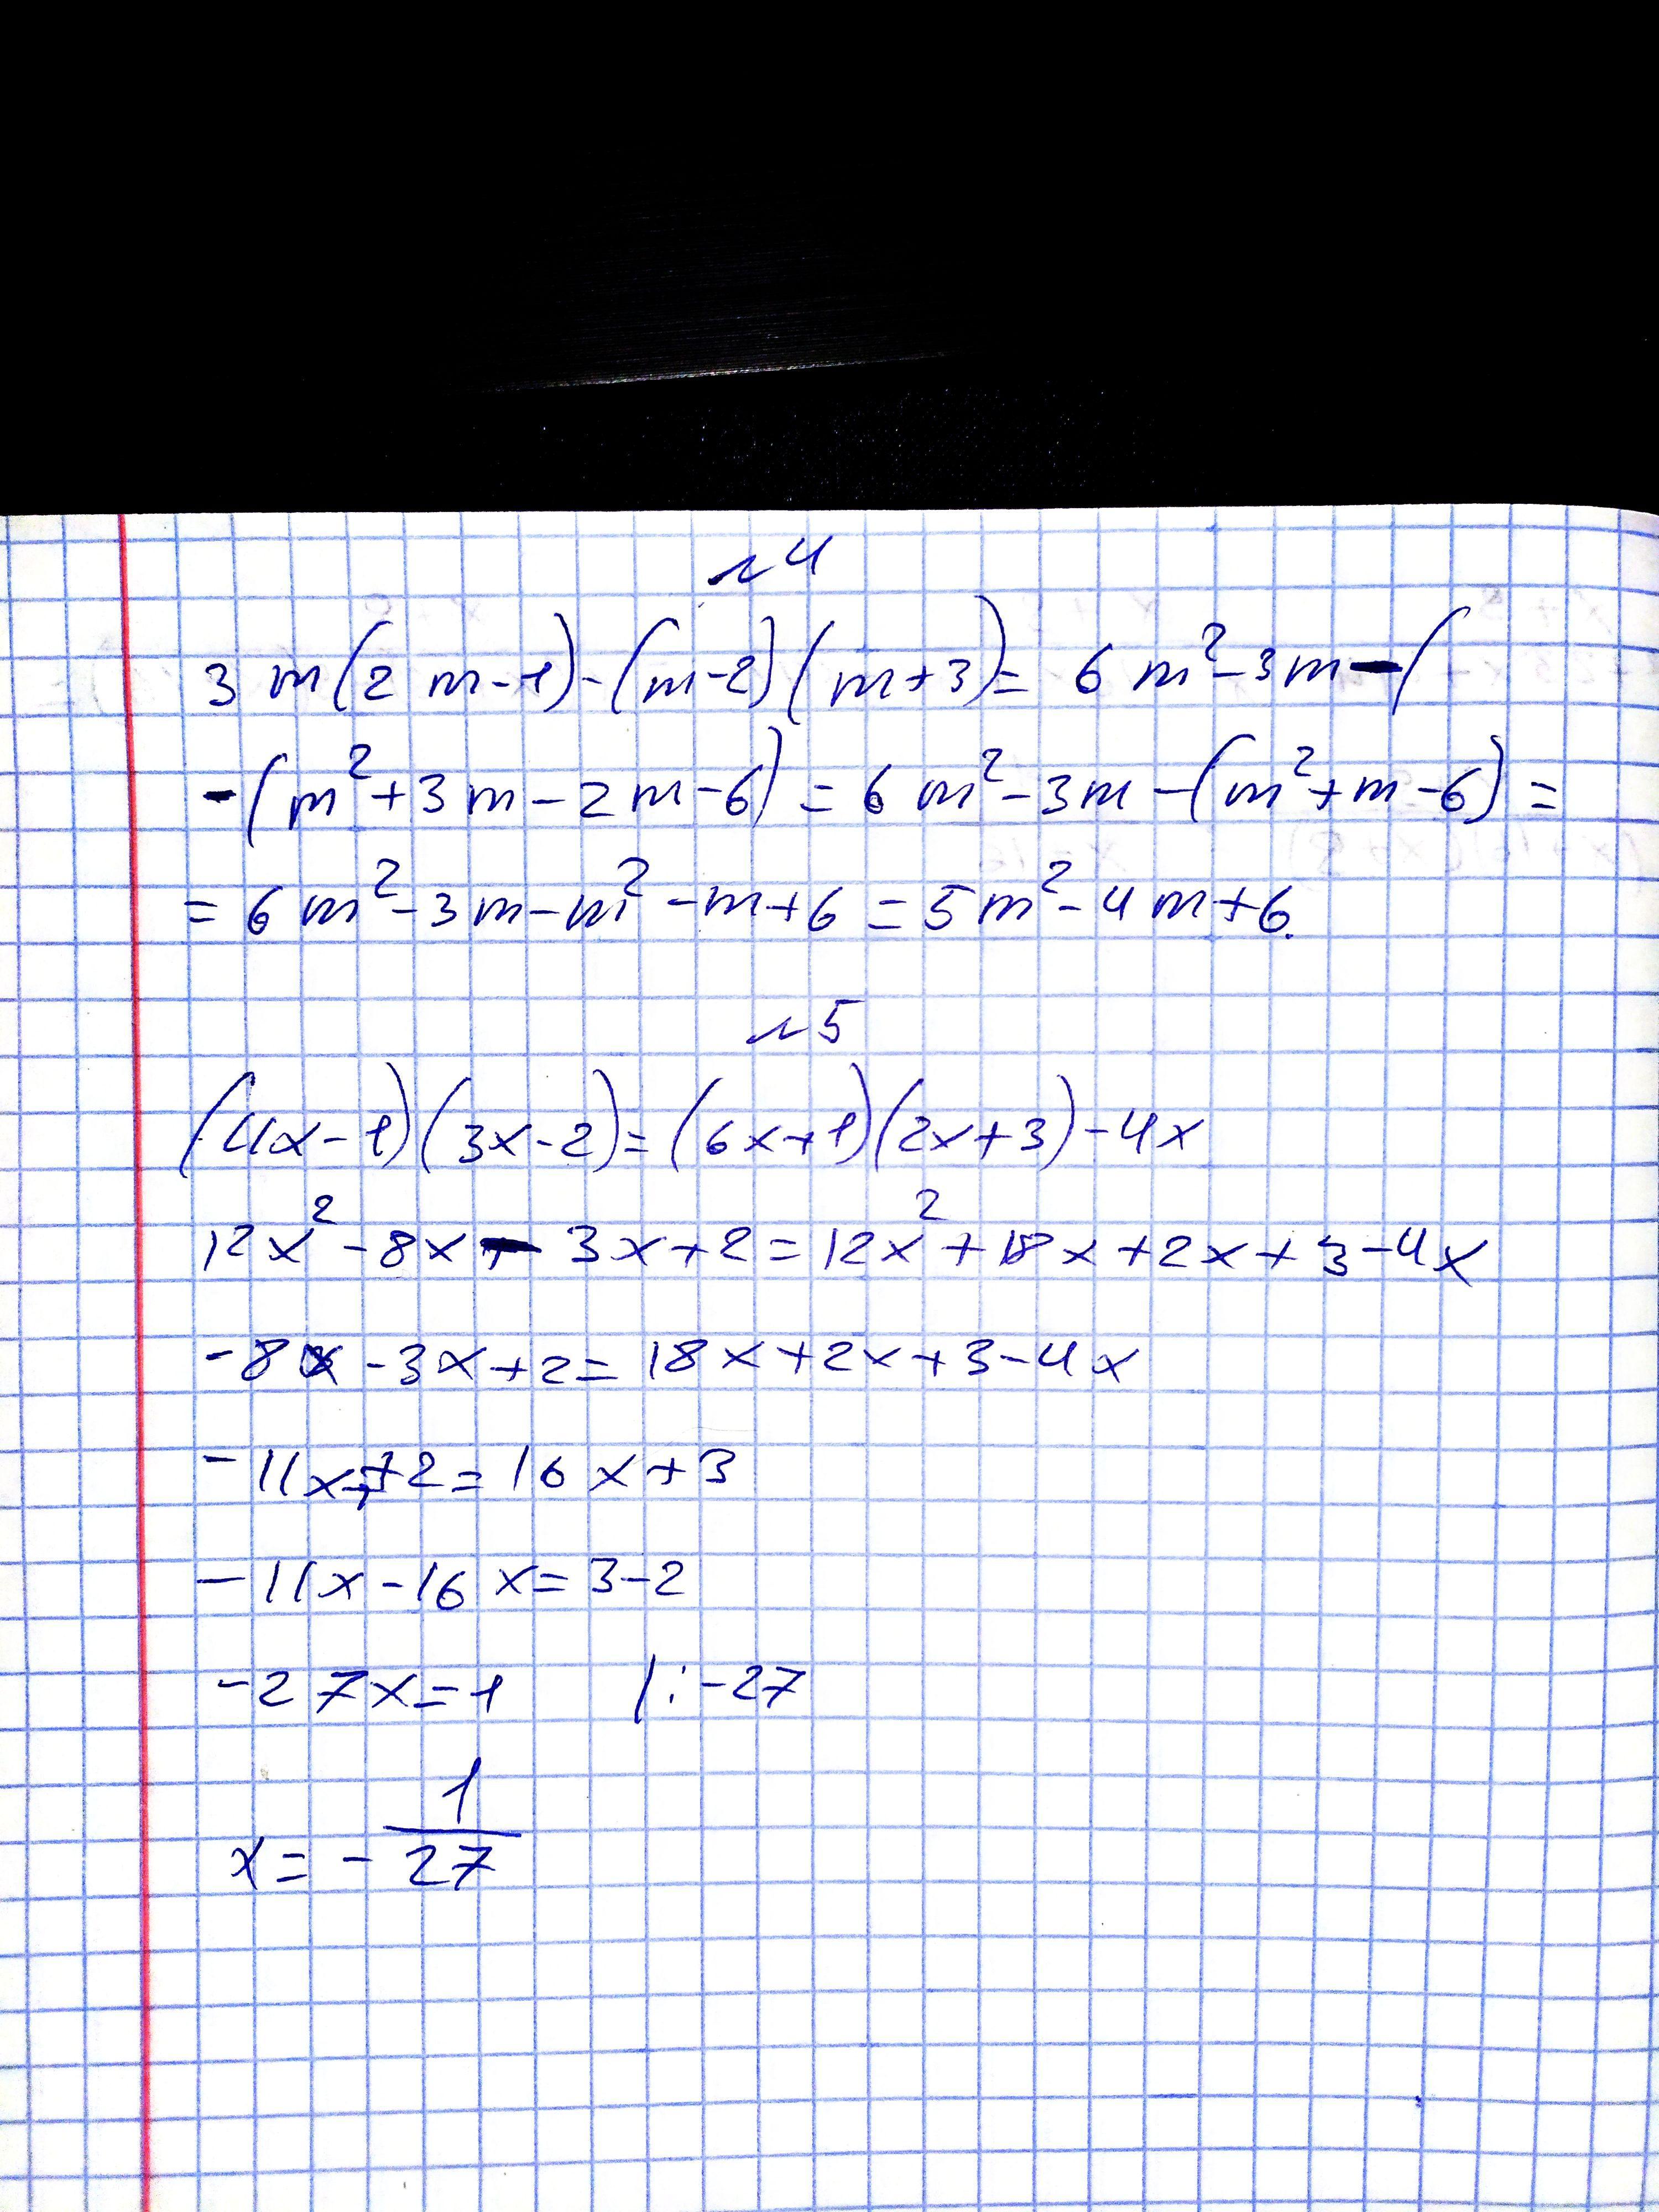 №4
3m(2m-1)-(m-2)(m+3)= 6m²-3m-(
-(m²+3m-2m-6)=6m²-3m-(m²+m-6)=
=6m²-3m-m²-m+6=5m²-4m+6.
№5
(4x-1)(3x-2)=(6x+1)(2x+3)-4x
12x²-8x-3x+2=12x²+18x+2x+3-4x
-8x-3x+2=18x+2x+3-4x
-11x+2=16x+3
-11x-16x=3-2
-27x=1 |:-27
x=-1/27